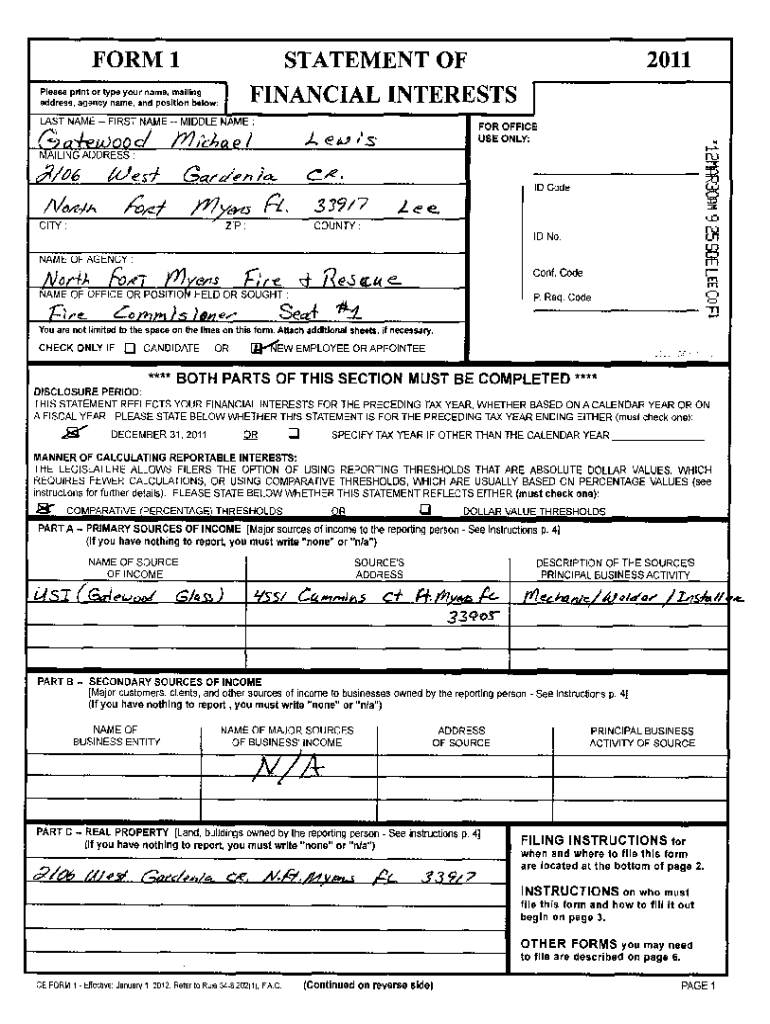 FORM 1 STATEMENT OF 2011
Please print or type your name, mailing
address, agency name, and position below:
FINANCIAL INTERESTS
LAST NAME -- FIRST NAME -- MIDDLE NAME :
Gatewood Michael Lewis
MAILING ADDRESS :
2106 West Gardenia CR.
North Fort Myers FL. 33917 Lee
CITY : ZIP : COUNTY :
NAME OF AGENCY :
North Fort Myers Fire & Rescue
NAME OF OFFICE OR POSITION HELD OR SOUGHT :
Fire Commisioner Seat #1
You are not limited to the space on the lines on this form. Attach additional sheets, if necessary.
CHECK ONLY IF ☐ CANDIDATE OR ☒ NEW EMPLOYEE OR APPOINTEE
FOR OFFICE
USE ONLY:
ID Code
ID No.
Conf. Code
P. Req. Code
'12MAR30AM 9 25 SOE LEE CO Fl
**** BOTH PARTS OF THIS SECTION MUST BE COMPLETED ****
DISCLOSURE PERIOD:
THIS STATEMENT REFLECTS YOUR FINANCIAL INTERESTS FOR THE PRECEDING TAX YEAR, WHETHER BASED ON A CALENDAR YEAR OR ON
A FISCAL YEAR. PLEASE STATE BELOW WHETHER THIS STATEMENT IS FOR THE PRECEDING TAX YEAR ENDING EITHER (must check one):
☒ DECEMBER 31, 2011 OR ☐ SPECIFY TAX YEAR IF OTHER THAN THE CALENDAR YEAR
MANNER OF CALCULATING REPORTABLE INTERESTS:
THE LEGISLATURE ALLOWS FILERS THE OPTION OF USING REPORTING THRESHOLDS THAT ARE ABSOLUTE DOLLAR VALUES, WHICH
REQUIRES FEWER CALCULATIONS, OR USING COMPARATIVE THRESHOLDS, WHICH ARE USUALLY BASED ON PERCENTAGE VALUES (see
instructions for further details). PLEASE STATE BELOW WHETHER THIS STATEMENT REFLECTS EITHER (must check one):
☒ COMPARATIVE (PERCENTAGE) THRESHOLDS OR ☐ DOLLAR VALUE THRESHOLDS
PART A -- PRIMARY SOURCES OF INCOME [Major sources of income to the reporting person - See instructions p. 4]
(If you have nothing to report, you must write "none" or "n/a")
NAME OF SOURCE SOURCE'S DESCRIPTION OF THE SOURCE'S
OF INCOME ADDRESS PRINCIPAL BUSINESS ACTIVITY
UST (Gatewood Glass) 4551 Cummins Ct Ft. Myers FL Mechanic/Welder/Installer
33905
PART B -- SECONDARY SOURCES OF INCOME
[Major customers, clients, and other sources of income to businesses owned by the reporting person - See instructions p. 4]
(If you have nothing to report , you must write "none" or "n/a")
NAME OF NAME OF MAJOR SOURCES ADDRESS PRINCIPAL BUSINESS
BUSINESS ENTITY OF BUSINESS' INCOME OF SOURCE ACTIVITY OF SOURCE
N/A
PART C -- REAL PROPERTY [Land, buildings owned by the reporting person - See instructions p. 4]
(If you have nothing to report, you must write "none" or "n/a")
2106 West Gardenia CR. N.Ft.Myers FL 33917
FILING INSTRUCTIONS for
when and where to file this form
are located at the bottom of page 2.
INSTRUCTIONS on who must
file this form and how to fill it out
begin on page 3.
OTHER FORMS you may need
to file are described on page 6.
CE FORM 1 - Effective: January 1, 2012. Refer to Rule 34-8.202(1), F.A.C. (Continued on reverse side) PAGE 1